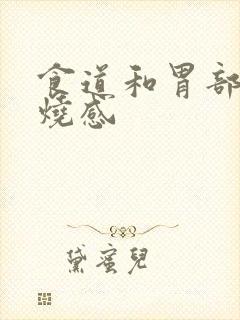 食道和胃部
燒感
黛蜜兒